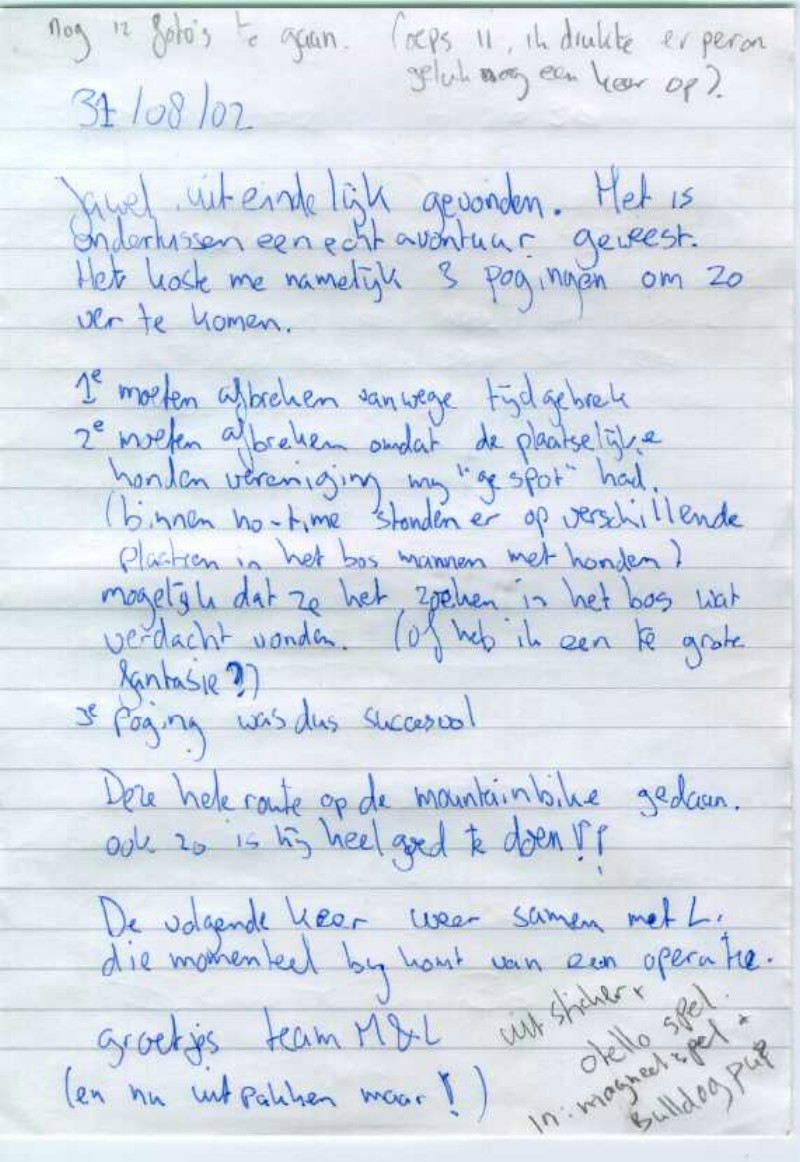 nog 12 foto's te gaan. (oeps 11, ik drukte er per on
geluk nog een keer op).
31/08/02
Jawel, uiteindelijk gevonden. Het is
ondertussen een echt avontuur geweest.
Het koste me namelijk 3 pogingen om zo
ver te komen.
1e moeten afbreken vanwege tijdgebrek
2e moeten afbreken omdat de plaatselijke
honden vereniging my "gespot" had.
(binnen no-time stonden er op verschillende
plaatsen in het bos mannen met honden)
mogelijk dat ze het zoeken in het bos wat
verdacht vonden. (of heb ik een te grote
fantasie?)
3e poging was dus succesvol
Deze hele route op de mountainbike gedaan.
ook zo is hij heel goed te doen!!
De volgende keer weer samen met L.
die momenteel by komt van een operatie.
groetjes team M&L
(en nu uitpakken maar!)
uit sticker +
otello spel.
In: magneet spel +
Bulldog pup